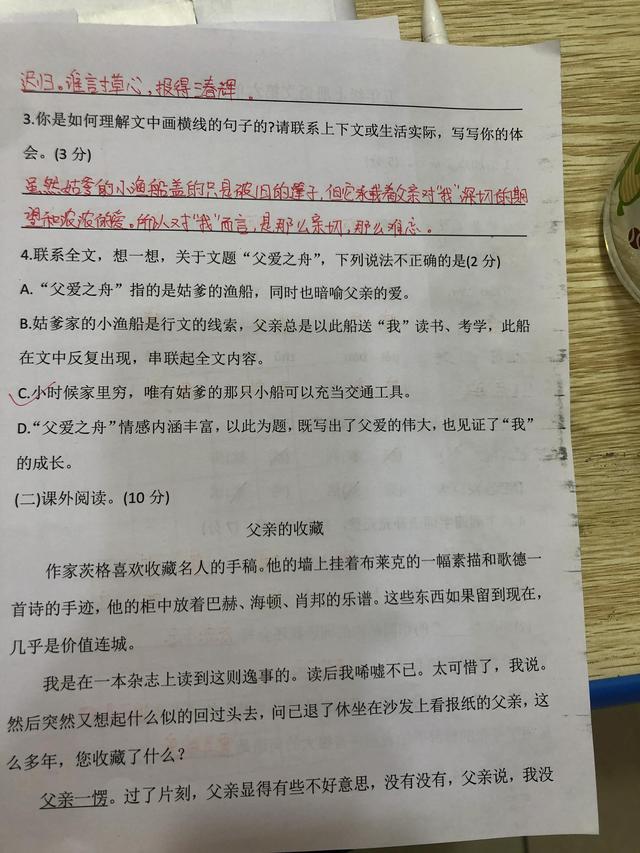 迟归。谁言寸草心，报得三春辉。
3.你是如何理解文中画横线的句子的?请联系上下文或生活实际，写写你的体
会。(3 分)
虽然姑爹的小渔船盖的只是破旧的篷子，但它承载着父亲对“我”深切的期
望和浓浓的爱。所以对“我”而言，是那么亲切，那么难忘。
4.联系全文，想一想，关于文题“父爱之舟”，下列说法不正确的是(2 分)
A.“父爱之舟”指的是姑爹的渔船，同时也暗喻父亲的爱。
B.姑爹家的小渔船是行文的线索，父亲总是以此船送“我”读书、考学，此船
在文中反复出现，串联起全文内容。
C.小时候家里穷，唯有姑爹的那只小船可以充当交通工具。
D.“父爱之舟”情感内涵丰富，以此为题，既写出了父爱的伟大，也见证了“我”
的成长。
(二)课外阅读。(10 分)
父亲的收藏
作家茨格喜欢收藏名人的手稿。他的墙上挂着布莱克的一幅素描和歌德一
首诗的手迹，他的柜中放着巴赫、海顿、肖邦的乐谱。这些东西如果留到现在，
几乎是价值连城。
我是在一本杂志上读到这则逸事的。读后我唏嘘不已。太可惜了，我说。
然后突然又想起什么似的回过头去，问已退了休坐在沙发上看报纸的父亲，这
么多年，您收藏了什么？
父亲一愣。过了片刻，父亲显得有些不好意思，没有没有，父亲说，我没